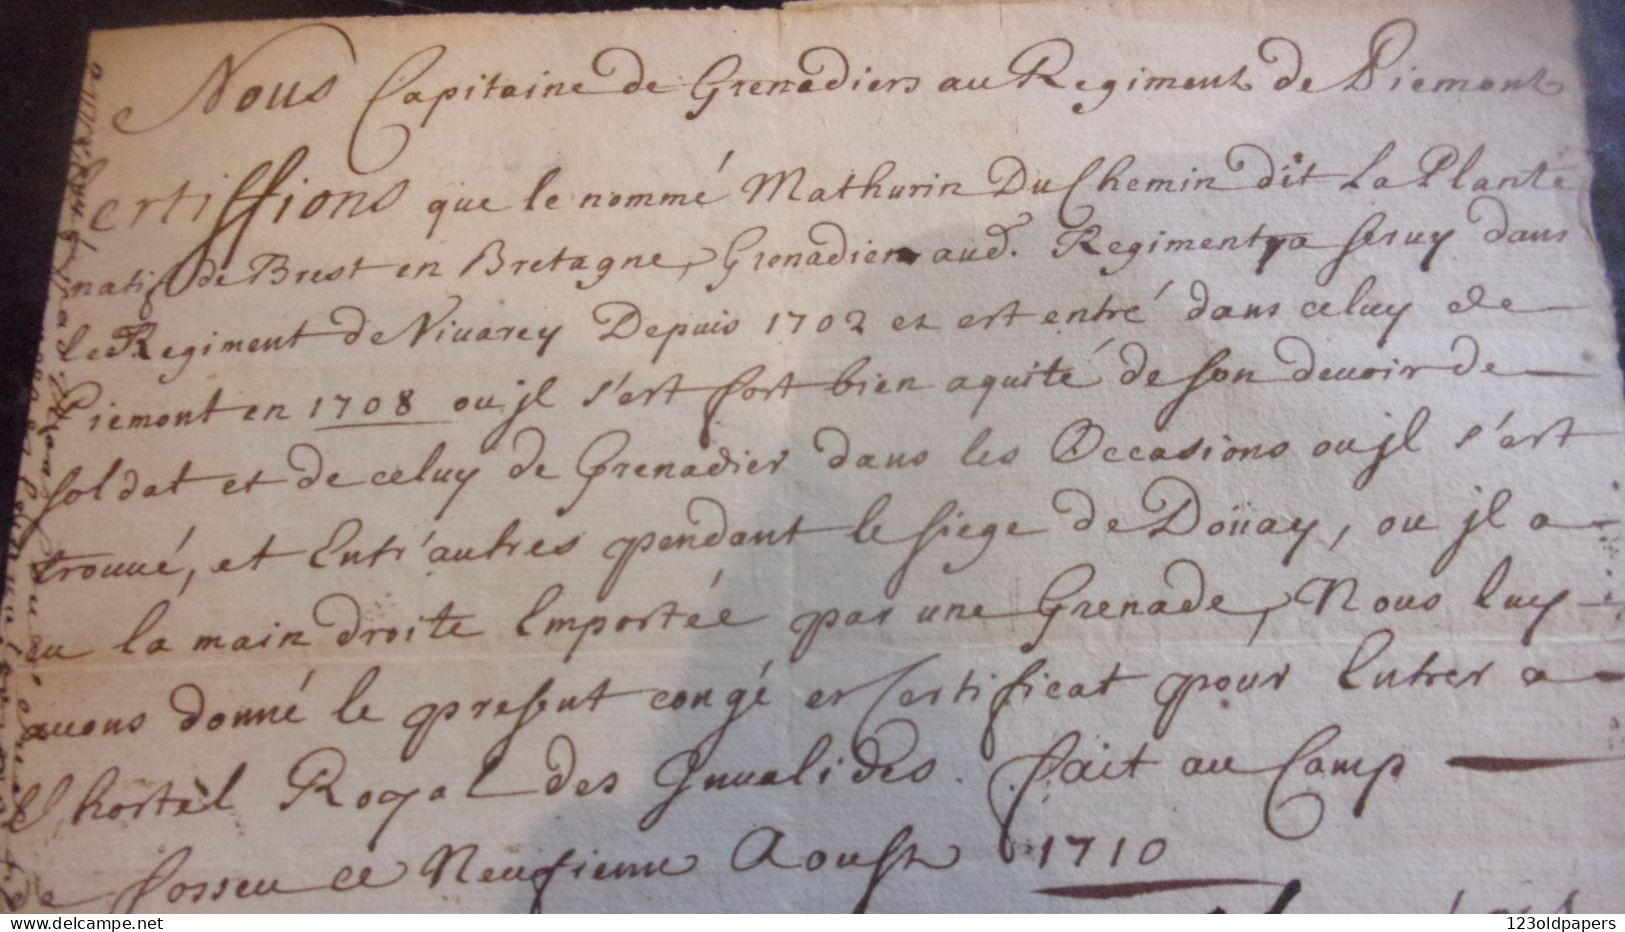 Nous Capitaine de Grenadiers au Regiment de Piemont
Certiffions que le nommé Mathurin Du Chemin dit La Plante
natif de Brest en Bretagne, Grenadier aud. Regiment, a seruy dans
le Regiment de Viuarey Depuis 1702 et est entré dans celuy de
Piemont en 1708 ou jl s'est fort bien aquité de son deuoir de
soldat et de celuy de Grenadier dans les Occasions ou jl s'est
trouué, et Entr'autres pendant le siege de Doüay, ou jl a
eu la main droite Emportée par une Grenade, Nous luy
auons donné le present congé et Certificat pour Entrer a
L'hostel Royal des Jnualides. fait au Camp
de fosseu ce Neufieme Aoust 1710
123oldpapers